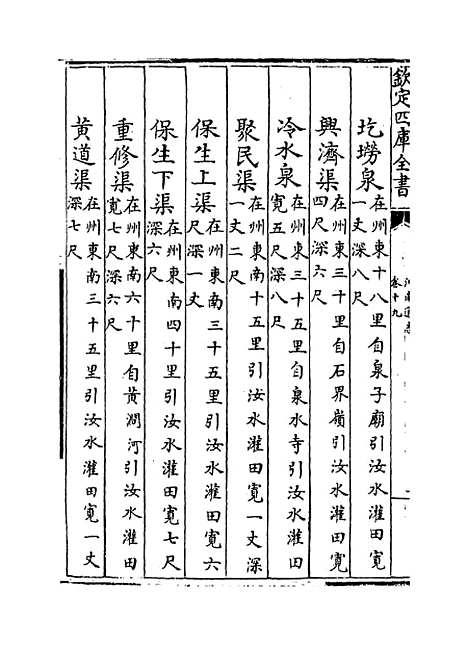 欽定四庫全書
河南通志
卷十九
圪撈泉在州東十八里自泉子廟引汝水灌田寬
一丈深八尺
興濟渠在州東三十里自石界嶺引汝水灌田寬
四尺深六尺
冷水泉在州東三十五里自泉水寺引汝水灌田
寬五尺深八尺
聚民渠在州東南十五里引汝水灌田寬一丈深
一丈二尺
保生上渠在州東南三十五里引汝水灌田寬六
尺深一丈
保生下渠在州東南四十里引汝水灌田寬七尺
深六尺
重修渠在州東南六十里自黄澗河引汝水灌田
寬七尺深六尺
黄道渠在州東南三十五里引汝水灌田寬一丈
深七尺